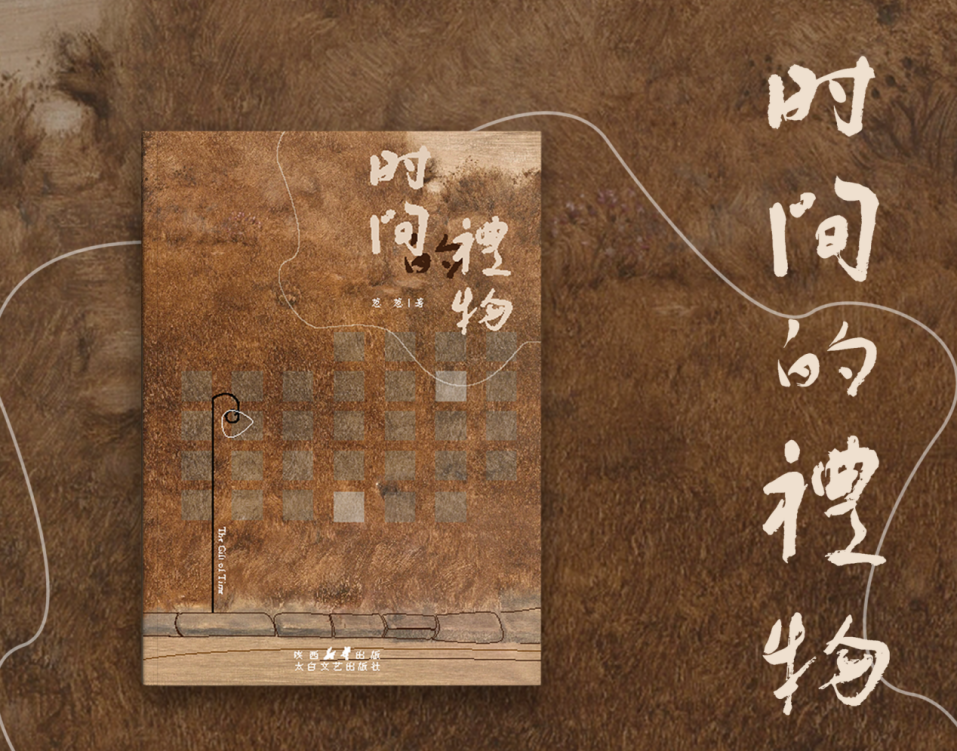 时间
的
禮物
著
The Gift of Time
陕西新华出版
太白文艺出版社
时间的禮物